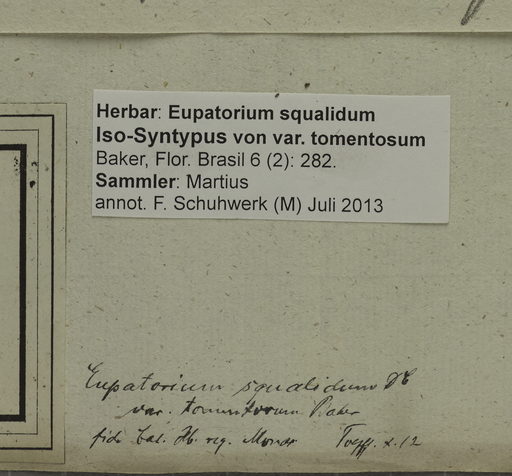 Herbar: Eupatorium squalidum
Iso-Syntypus von var. tomentosum
Baker, Flor. Brasil 6 (2): 282.
Sammler: Martius
annot. F. Schuhwerk (M) Juli 2013
Eupatorium squalidum DC
var. tomentosum Baker
fide Hb. reg. Monac